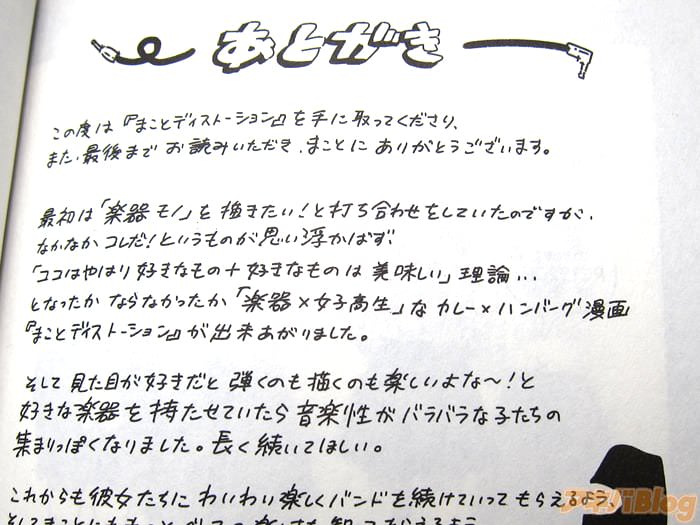 あとがき
この度は『まことディストーション』を手に取ってくださり、
また、最後までお読みいただき、まことにありがとうございます。
最初は「楽器モノ」を描きたい!と打ち合わせをしていたのですが、
なかなかコレだ!というものが思い浮かばず、
「ココはやはり好きなもの+好きなものは美味しい」理論…
となったかならなかったか「楽器×女子高生」なカレー×ハンバーグ漫画
『まことディストーション』が出来あがりました。
そして見た目が好きだと弾くのも描くのも楽しいよな〜!と
好きな楽器を持たせていたら音楽性がバラバラな子たちの
集まりっぽくなりました。長く続いてほしい。
これからも彼女たちにわいわい楽しくバンドを続けていってもらえるよう、
アキバBlog